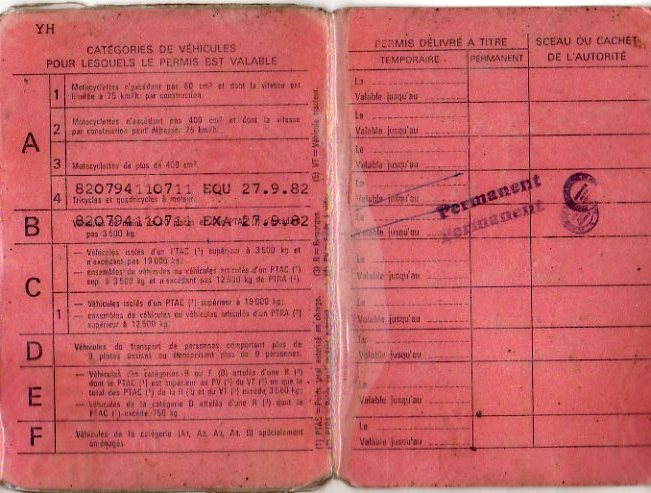 YH
CATÉGORIES DE VÉHICULES
POUR LESQUELS LE PERMIS EST VALABLE
A
1
Motocyclettes n'excédant pas 80 cm³ et dont la vitesse est
limitée à 75 km/h. par construction.
2
Motocyclettes n'excédant pas 400 cm³ et dont la vitesse
par construction peut dépasser 75 km/h.
3
Motocyclettes de plus de 400 cm³.
4
820794110711 EQU 27.9.82
Tricycles et quadricycles à moteur.
B
820794110711 EXA 27.9.82
pas 3 500 kg.
C
— Véhicules isolés d'un PTAC (¹) supérieur à 3 500 kg et
n'excédant pas 19 000 kg;
— ensembles de véhicules ou véhicules articulés d'un PTAC (¹)
sup. à 3 500 kg et n'excédant pas 12 500 kg de PTRA (²)
1
— Véhicules isolés d'un PTAC (¹) supérieur à 19 000 kg;
— ensembles de véhicules ou véhicules articulés d'un PTRA (²)
supérieur à 12 500 kg.
D
Véhicules de transport de personnes comportant plus de
9 places assises ou transportant plus de 9 personnes.
E
— Véhicules des catégories B ou F (B) attelés d'une R (³)
dont le PTAC (¹) est supérieur au PV (⁴) du VT (⁵) ou que le
total des PTAC (¹) de la R (³) et du VT (⁵) excède 3 500 kg;
— véhicules de la catégorie D attelés d'une R (³) dont le
PTAC (¹) excède 750 kg.
F
Véhicules de la catégorie (A1, A2, A3, A4, B) spécialement
aménagés.
(1) PTAC = Poids total autorisé en charge.
(3) R = Remorque
(5) VT = Véhicule tracteur.
PERMIS DÉLIVRÉ A TITRE
SCEAU OU CACHET
DE L'AUTORITÉ
TEMPORAIRE
PERMANENT
Le
Valable jusqu'au
Le
Valable jusqu'au
Le
Valable jusqu'au
Le
Valable jusqu'au
Permanent
Permanent
Le
Valable jusqu'au
Le
Valable jusqu'au
Le
Valable jusqu'au
Le
Valable jusqu'au
Le
Valable jusqu'au
Le
Valable jusqu'au